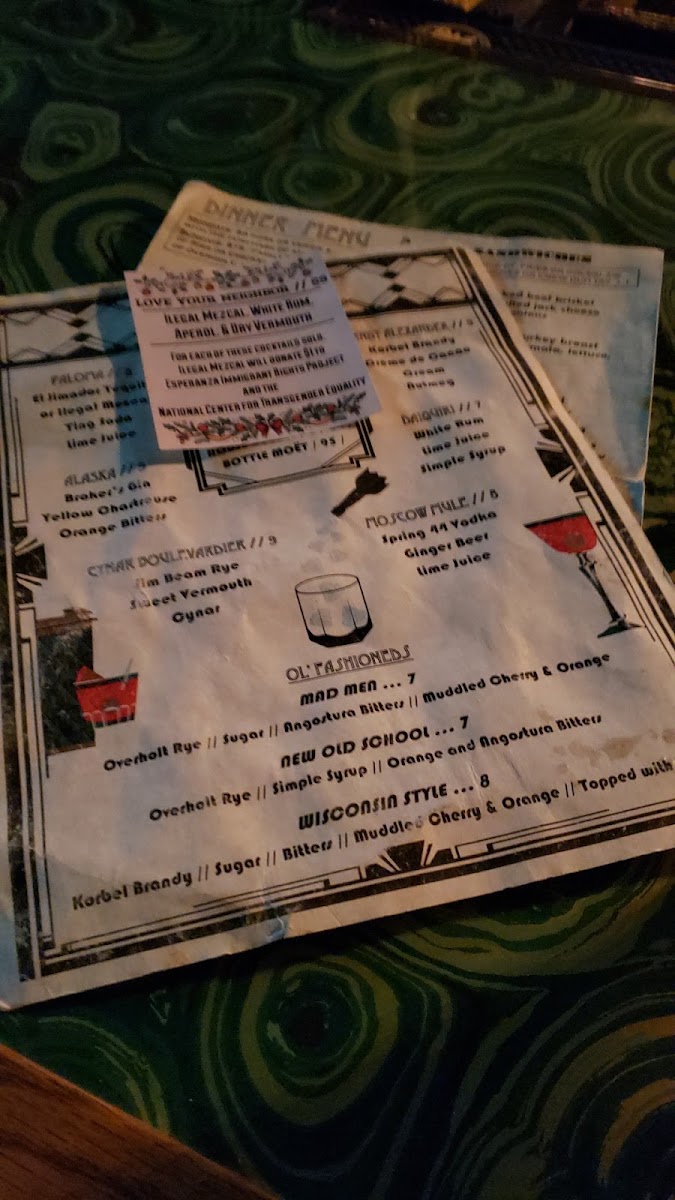 DINNER MENU
SANDWICHES
LOVE YOUR NEIGHBOR //
ILEGAL MEZCAL, WHITE RUM,
APEROL, & DRY VERMOUTH
FOR EACH OF THESE COCKTAILS SOLD,
ILEGAL MEZCAL WILL DONATE $1 TO
ESPERANZA IMMIGRANT RIGHTS PROJECT
AND THE
NATIONAL CENTER FOR TRANSGENDER EQUALITY
BOTTLE MOËT | 95 |
PALOMA //
El Jimador
or Ilegal
Ting Soda
Lime Juice
ALASKA // 9
Broker's Gin
Yellow Chartreuse
Orange Bitters
CYNAR BOULEVARDIER // 9
Jim Beam Rye
Sweet Vermouth
Cynar
ALEXANDER //
Korbel Brandy
Creme de Cacao
Cream
Nutmeg
DAIQUIRI // 7
White Rum
Lime Juice
Simple Syrup
MOSCOW MULE // 8
Spring 44 Vodka
Ginger Beer
Lime Juice
OL' FASHIONEDS
MAD MEN ... 7
Overholt Rye || Sugar || Angostura Bitters || Muddled Cherry & Orange
NEW OLD SCHOOL ... 7
Overholt Rye || Simple Syrup || Orange and Angostura Bitters
WISCONSIN STYLE ... 8
Korbel Brandy || Sugar || Bitters || Muddled Cherry & Orange || Topped with